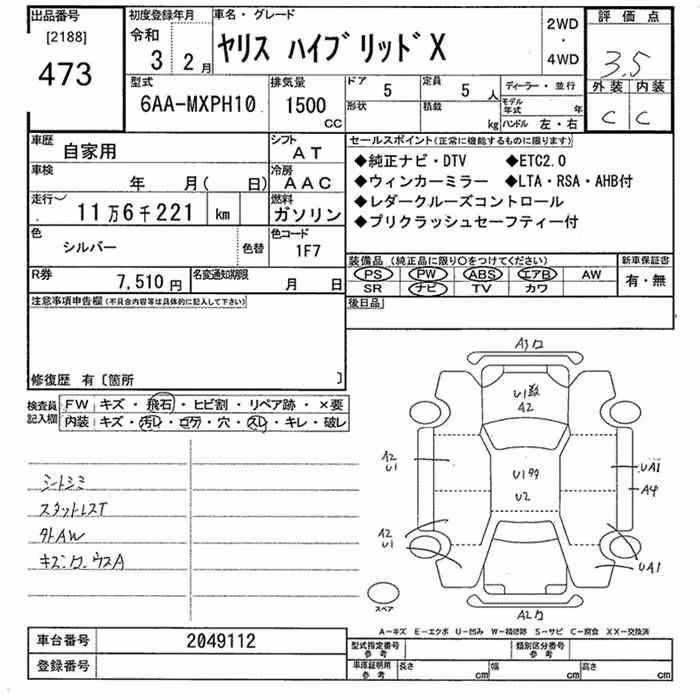 出品番号
[2188]
473
初度登録年月
令和
3 2月
車名・グレード
ヤリス ハイブリッドX
2WD
・
4WD
評価点
3.5
外装 内装
C C
型式
6AA-MXPH10
排気量
1500
CC
ドア 5
定員 5人
形状
積載 kg
ディーラー・並行
モデル年式 年
ハンドル 左・右
車歴
自家用
シフト
AT
車検
年 月( 日)
冷房
AAC
走行
11万6千221 km
燃料
ガソリン
色
シルバー
色替
色コード
1F7
R券
7,510円
名変通知期限
月 日
セールスポイント(正常に機能するものに限ります)
◆純正ナビ・DTV ◆ETC2.0
◆ウィンカーミラー ◆LTA・RSA・AHB付
◆レダークルーズコントロール
◆プリクラッシュセーフティー付
装備品(純正品に限り○をつけてください)
PS PW ABS エアB AW
SR ナビ TV カワ
新車保証書
有・無
後日品
注意事項申告欄(不具合内容等は具体的に記入して下さい)
修復歴 有〔箇所 〕
検査員
記入欄
FW キズ・飛石・ヒビ割・リペア跡・×要
内装 キズ・汚レ・コゲ・穴・スレ・キレ・破レ
シートシミ
スタットレスT
外AW
A3
U1
A2
A2
U1
U1
U2
UA1
A4
A2
U1
UA1
A2
スペア
A－キズ E－エクボ U－凹み W－補修跡 S－サビ C－腐食 XX－交換済
車台番号 2049112
登録番号
型式指定番号
参考
類別区分番号
参考
車庫証明用
参考
長さ cm
幅 cm
高さ cm